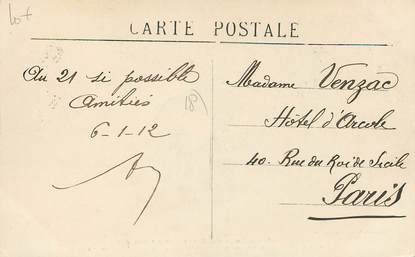 Lot
CARTE POSTALE
Au 21 si possible
Amitiés
6-1-12
18)
Madame Venzac
Hôtel d'Arcole
40. Rue du Roi de Sicile
Paris